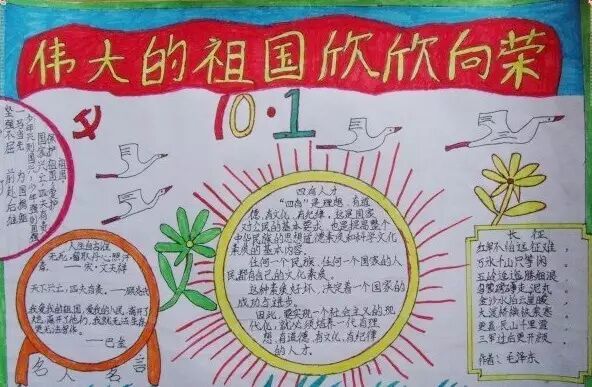 伟大的祖国欣欣向荣
10·1
坚强不屈 前赴后继
一马当先 为国捐躯
四有人才
"四有"是理想,有道
德,有文化,有纪律,这是国家
对公民的基本要求,也是提高整个
中华民族的思想道德素质和科学文化
素质的基本内容。
任何一个民族,任何一个国家的人
民都有自己的文化素质。
这种素质好坏,决定着一个国家的
成功与进步。
因此,要实现一个社会主义的现
代化,就必须培养一代有理
想,有道德,有文化,有纪律
的人才。
人生自古谁
无死,留取丹心照汗
青。 宋·文天祥
天下兴亡,匹夫有责。——顾炎武
我爱我的祖国,爱我的人民,离开了
她,离开了他们,我就无法生存,
更无法写作。
——巴金
名人名言
长征
红军不怕远征难,
万水千山只等闲
五岭逶迤腾细浪
乌蒙磅礴走泥丸
金沙水拍云崖暖
大渡桥横铁索寒
更喜岷山千里雪
三军过后尽开颜
作者:毛泽东